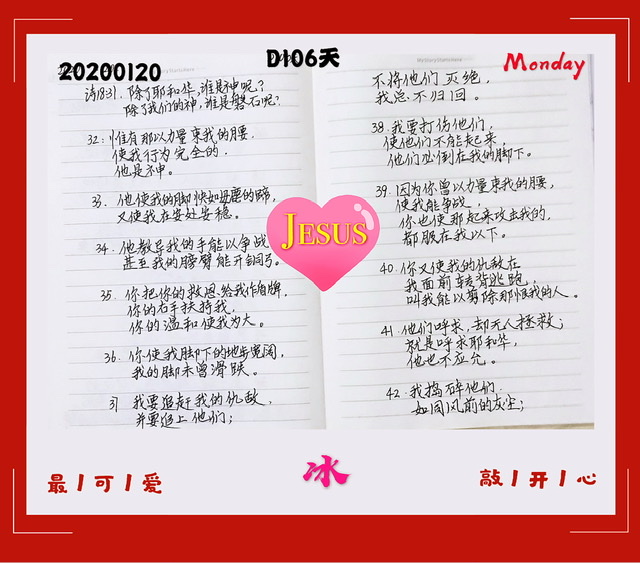 20200120
D106天
Monday
诗18:31. 除了耶和华,谁是神呢?
除了我们的神,谁是磐石呢?
32: 惟有那以力量束我的腰,
使我行为完全的,
他是神。
33. 他使我的脚快如母鹿的蹄,
又使我在高处安稳。
34. 他教导我的手能以争战,
甚至我的膀臂能开铜弓。
35. 你把你的救恩给我作盾牌,
你的右手扶持我,
你的温和使我为大。
36. 你使我脚下的地步宽阔,
我的脚未曾滑跌。
37 我要追赶我的仇敌,
并要追上他们;
不将他们灭绝,
我总不归回。
38. 我要打伤他们,
使他们不能起来,
他们必倒在我的脚下。
39. 因为你曾以力量束我的腰,
使我能争战,
你也使那起来攻击我的,
都服在我以下。
40. 你又使我的仇敌在
我面前转背逃跑,
叫我能以剪除那恨我的人。
41. 他们呼求,却无人拯救;
就是呼求耶和华,
他也不应允。
42. 我捣碎他们,
如同风前的灰尘;
JESUS
最丨可丨爱
冰
敲丨开丨心